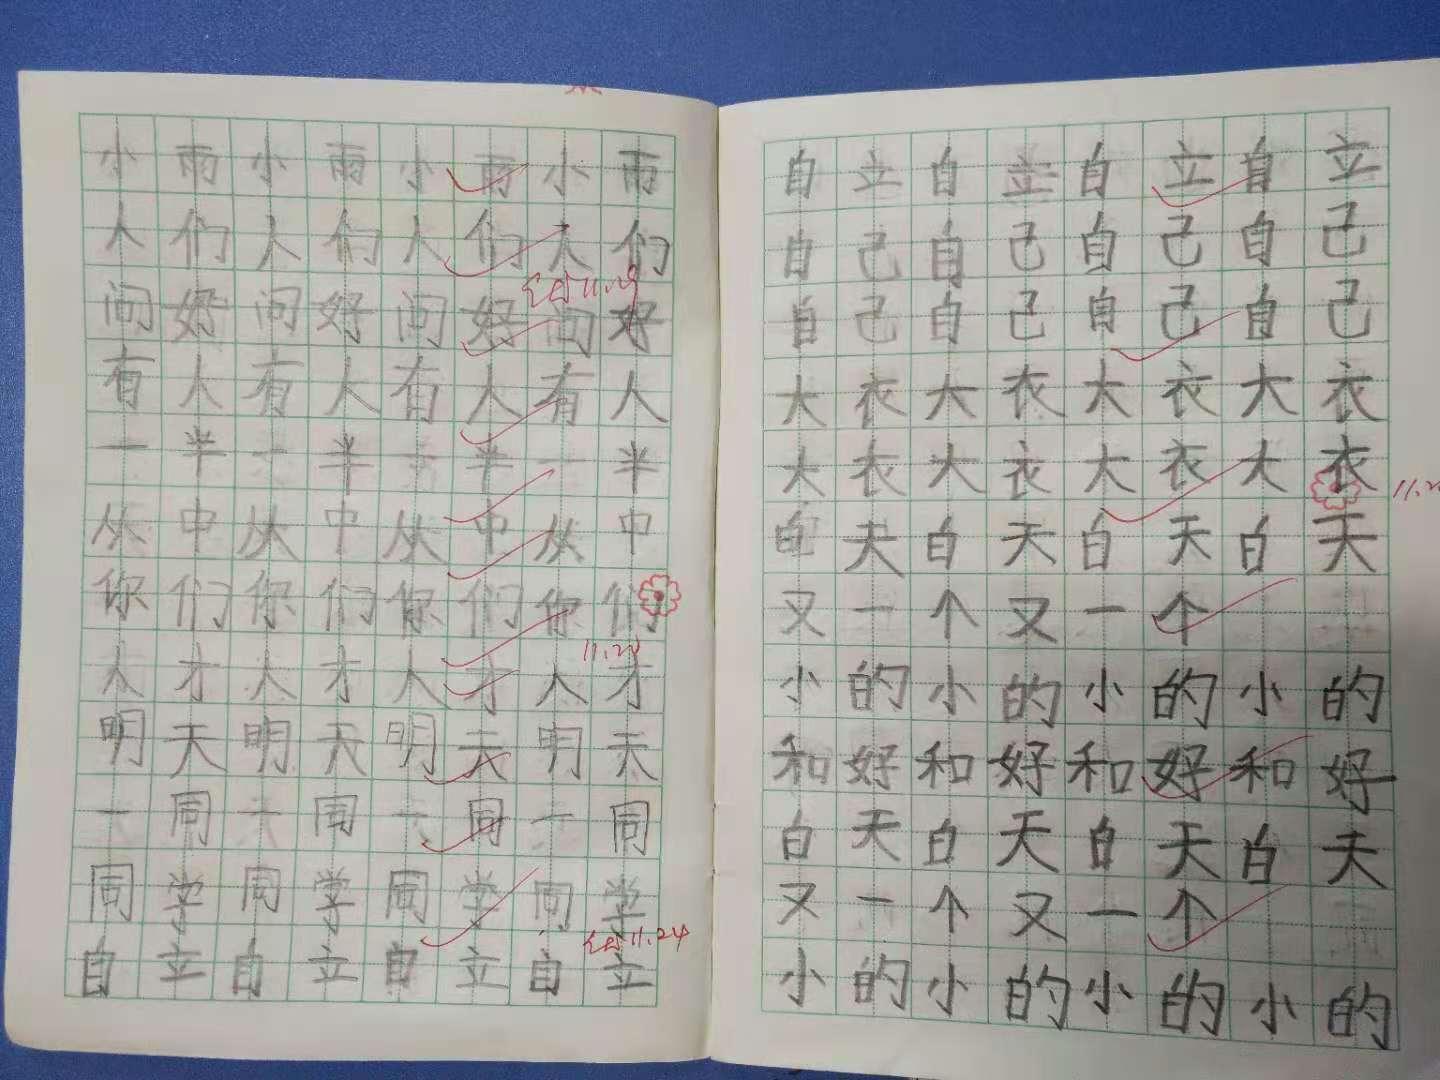 小雨小雨小雨小雨
人们人们人们人们
问好问好问好问好
有人有人有人有人
一半一半一半一半
从中从中从中从中
你们你们你们你们
11.24
人才人才人才人才
明天明天明天明天
一同一同一同一同
同学同学同学同学
11.24
自立自立自立自立
自立自立自立自立
自己自己自己自己
自己自己自己自己
大衣大衣大衣大衣
大衣大衣大衣大衣
白天白天白天白天
又一个又一个
小的小的小的小的
和好和好和好和好
白天白天白天白天
又一个又一个
小的小的小的小的